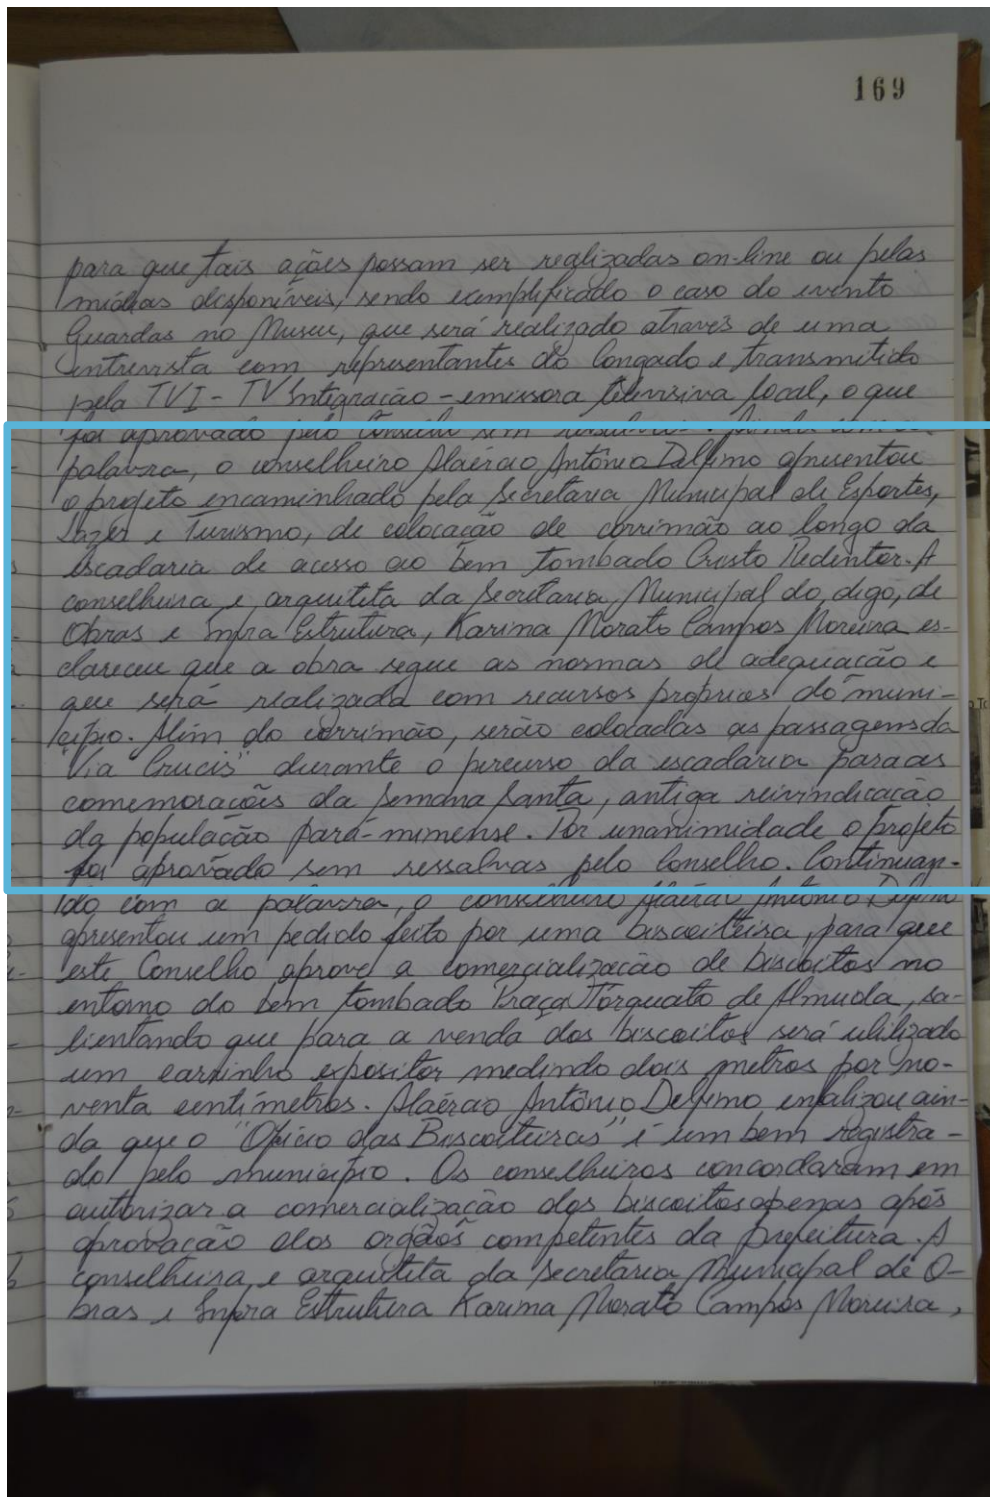 169
para que tais ações possam ser realizadas on-line ou pelas
mídias disponíveis, sendo exemplificado o caso do evento
Guardas no Museu, que será realizado através de uma
entrevista com representantes do Congado e transmitido
pela TVI - TV Integração - emissora televisiva local, o que
foi aprovado pelo Conselho sem
palavra, o conselheiro Alaércio Antônio Delfino apresentou
o projeto encaminhado pela Secretaria Municipal de Esportes,
Lazer e Turismo, de colocação de corrimão ao longo da
escadaria de acesso ao bem tombado Cristo Redentor. A
conselheira e arquiteta da Secretaria Municipal do, digo, de
Obras e Infra Estrutura, Karina Morato Campos Moreira es-
clareceu que a obra segue as normas de adequação e
que será realizada com recursos próprios do muni-
cípio. Além do corrimão, serão colocadas as passagens da
"Via Crucis" durante o percurso da escadaria para as
comemorações da Semana Santa, antiga reivindicação
da população pará-minense. Por unanimidade o projeto
foi aprovado sem ressalvas pelo Conselho. Continuan-
do com a palavra, o conselheiro Alaércio Antônio Delfino
apresentou um pedido feito por uma biscoiteira, para que
este Conselho aprove a comercialização de biscoitos no
entorno do bem tombado Praça Torquato de Almeida, sa-
lientando que para a venda dos biscoitos será utilizado
um carrinho expositor medindo dois metros por no-
venta centímetros. Alaércio Antônio Delfino enfatizou ain-
da que o "Ofício das Biscoiteiras" é um bem registra-
do pelo município. Os conselheiros concordaram em
autorizar a comercialização dos biscoitos apenas após
aprovação dos orgãos competentes da Prefeitura. A
conselheira e arquiteta da Secretaria Municipal de O-
bras e Infra Estrutura Karina Morato Campos Moreira,